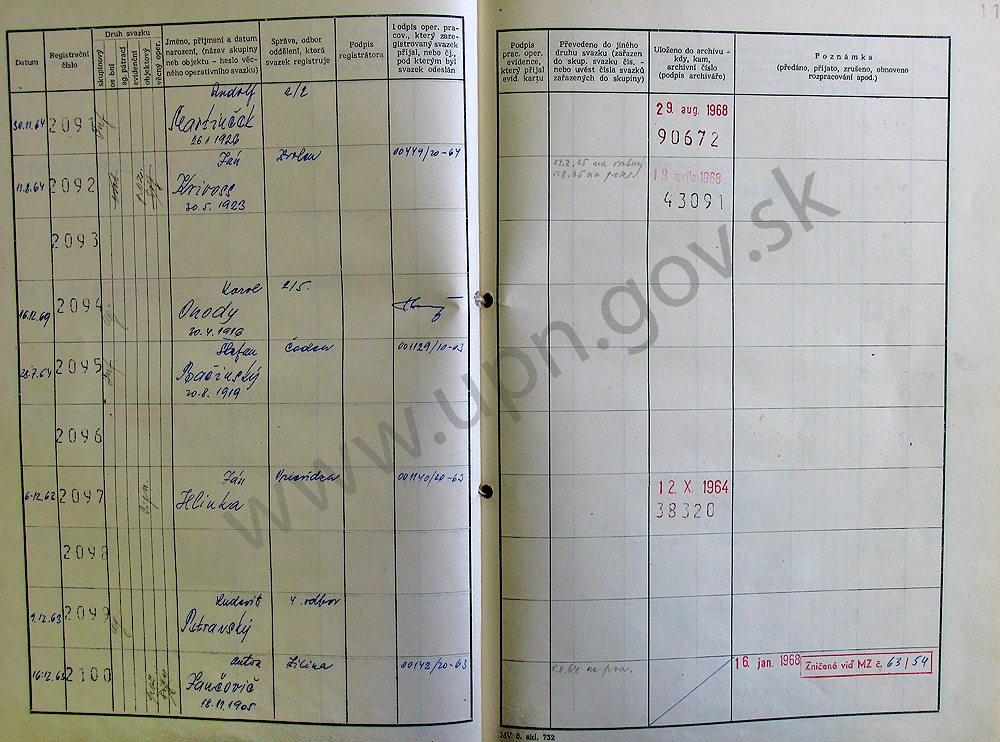 11
Datum
Registrační
číslo
Druh svazku
skupinový
osobní
ag pátrací
evidenční
objektový
věcný oper.
Jméno, příjmení a datum
narození, (název skupiny
neb objektu - heslo věc-
ného operativního svazku)
Správa, odbor
oddělení, která
svazek registruje
Podpis
registrátora
Podpis oper. pra-
cov., který zare-
gistrovaný svazek
přijal, nebo čj.,
pod kterým byl
svazek odeslán
Podpis
prac. oper.
evidence,
který přijal
evid. kartu
Převedeno do jiného
druhu svazku (zařazen
do skup. svazku čís. -
nebo uvést čísla svazků
zařazených do skupiny)
Uloženo do archivu -
kdy, kam,
archivní číslo
(podpis archiváře)
Poznámka
(předáno, přijato, zrušeno, obnoveno
rozpracování apod.)
Rudolf
30.11.64 2091 Martinček
26.1.1926
2/2
29. aug. 1968
90672
Ján
11.2.64 2092 Krivoss
20.5.1923
Zvolen
00449/20-64
19. apríla 1968
43091
2093
Karol
16.12.69 2094 Onody
20.4.1916
2/5
Štefan
28.7.64 2095 Bačinský
20.8.1919
Čadca
001129/10-63
2096
Ján
6.12.62 2097 Hlinka
Prievidza
001140/20-62
12. X. 1964
38320
2098
Ludevit
9.12.63 2099 Petranský
4. odbor
Anton
16.12.63 2100 Jančovič
18.11.1905
Žilina
00142/20-63
16. jan. 1968
Zničené viď MZ č. 63/54
MV 5. skl. 732
www.upn.gov.sk